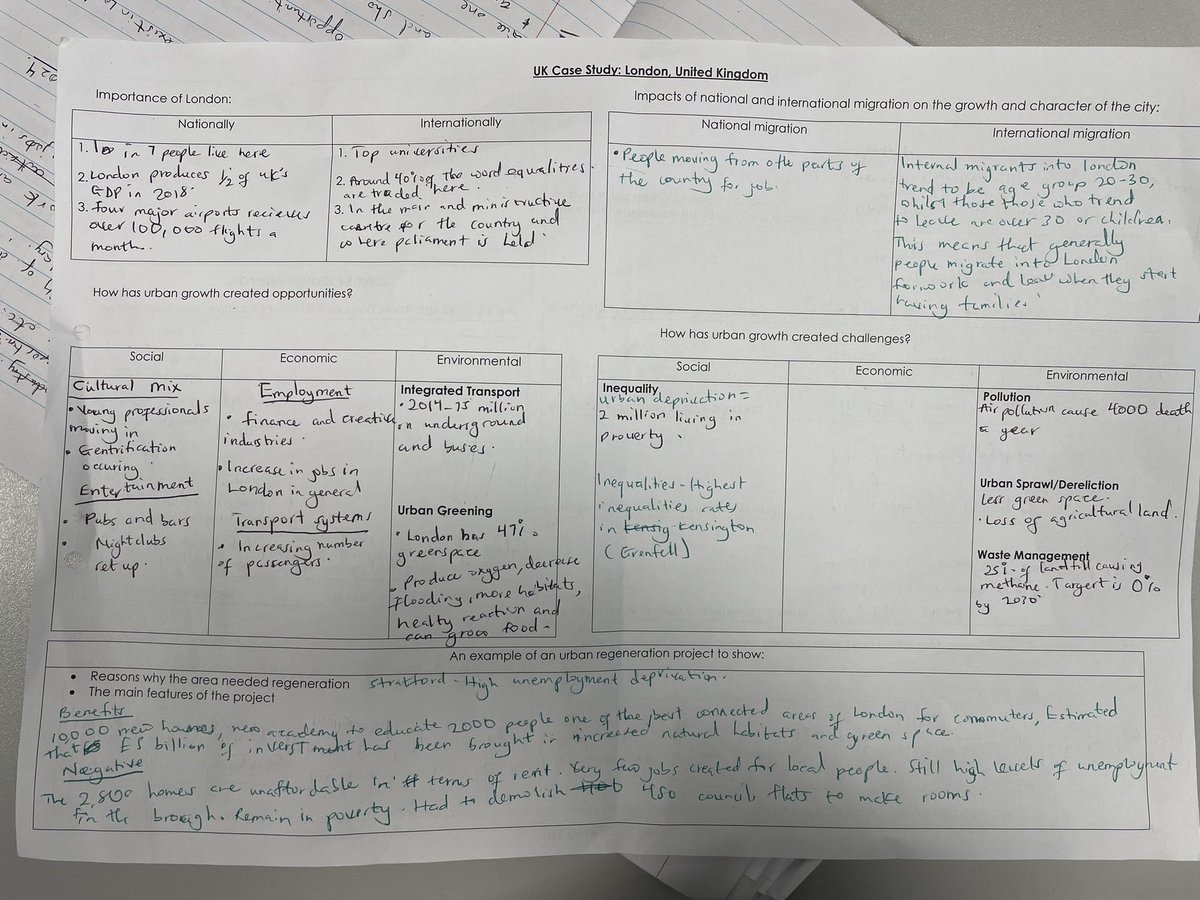 UK Case Study: London, United Kingdom
Importance of London:
Nationally
1. in 7 people live here
2. London produces 1/2 of uk's
GDP in 2018
3. Four major airports recieves
over 100,000 flights a
month.
Internationally
1. Top universities
2. Around 40% of The word equalitres
are traded here.
3. In the main and ministructive
centre for the country and
where parliament is held
Impacts of national and international migration on the growth and character of the city:
National migration
• People moving from othe parts of
the country for job.
International migration
Internal migrants into london
trend to be age group 20-30,
whilst those those who trend
to leave are over 30 or children.
This means that generally
people migrate into London
for work and leav when they start
having families.
How has urban growth created opportunities?
Social
Cultural mix
• Young professionals
moving in
• Gentrification
occuring.
Entertainment
• Pubs and bars
• Nightclubs
set up.
Economic
Employment
• finance and creative
industries.
• Increase in jobs in
London in general
Transport systems
• Increasing number
of passengers.
Environmental
Integrated Transport
• 2014-15 million
on underground
and buses.
Urban Greening
• London has 47%
greenspace
• Produce oxygen, decrease
flooding, more habitats,
healty reaction and
can grow food.
How has urban growth created challenges?
Social
Inequality
urban deprivation =
2 million living in
proverty.
Inequalities - Highest
inequalities rates
in kensig kensington
(Grenfell)
Economic
Environmental
Pollution
Air pollution cause 4000 death
a year
Urban Sprawl/Dereliction
Less green space.
• Loss of agricultural land.
Waste Management
25% of landfill causing
methane. Targert is 0%
by 2030
An example of an urban regeneration project to show:
• Reasons why the area needed regeneration Stratford - High unemployment deprivation.
• The main features of the project
Benefits
10,000 new houses, new academy to educate 2000 people one of the best connected areas of London for commuters, Estimated
that £5 billion of investment has been brought in increated natural habitats and green space.
Negative
The 2,800 homes are unaffordable in terms of rent. Very few jobs created for local people. Still high levels of unemployment
in the brough. Remain in poverty. Had to demolish 450 council flats to make rooms.